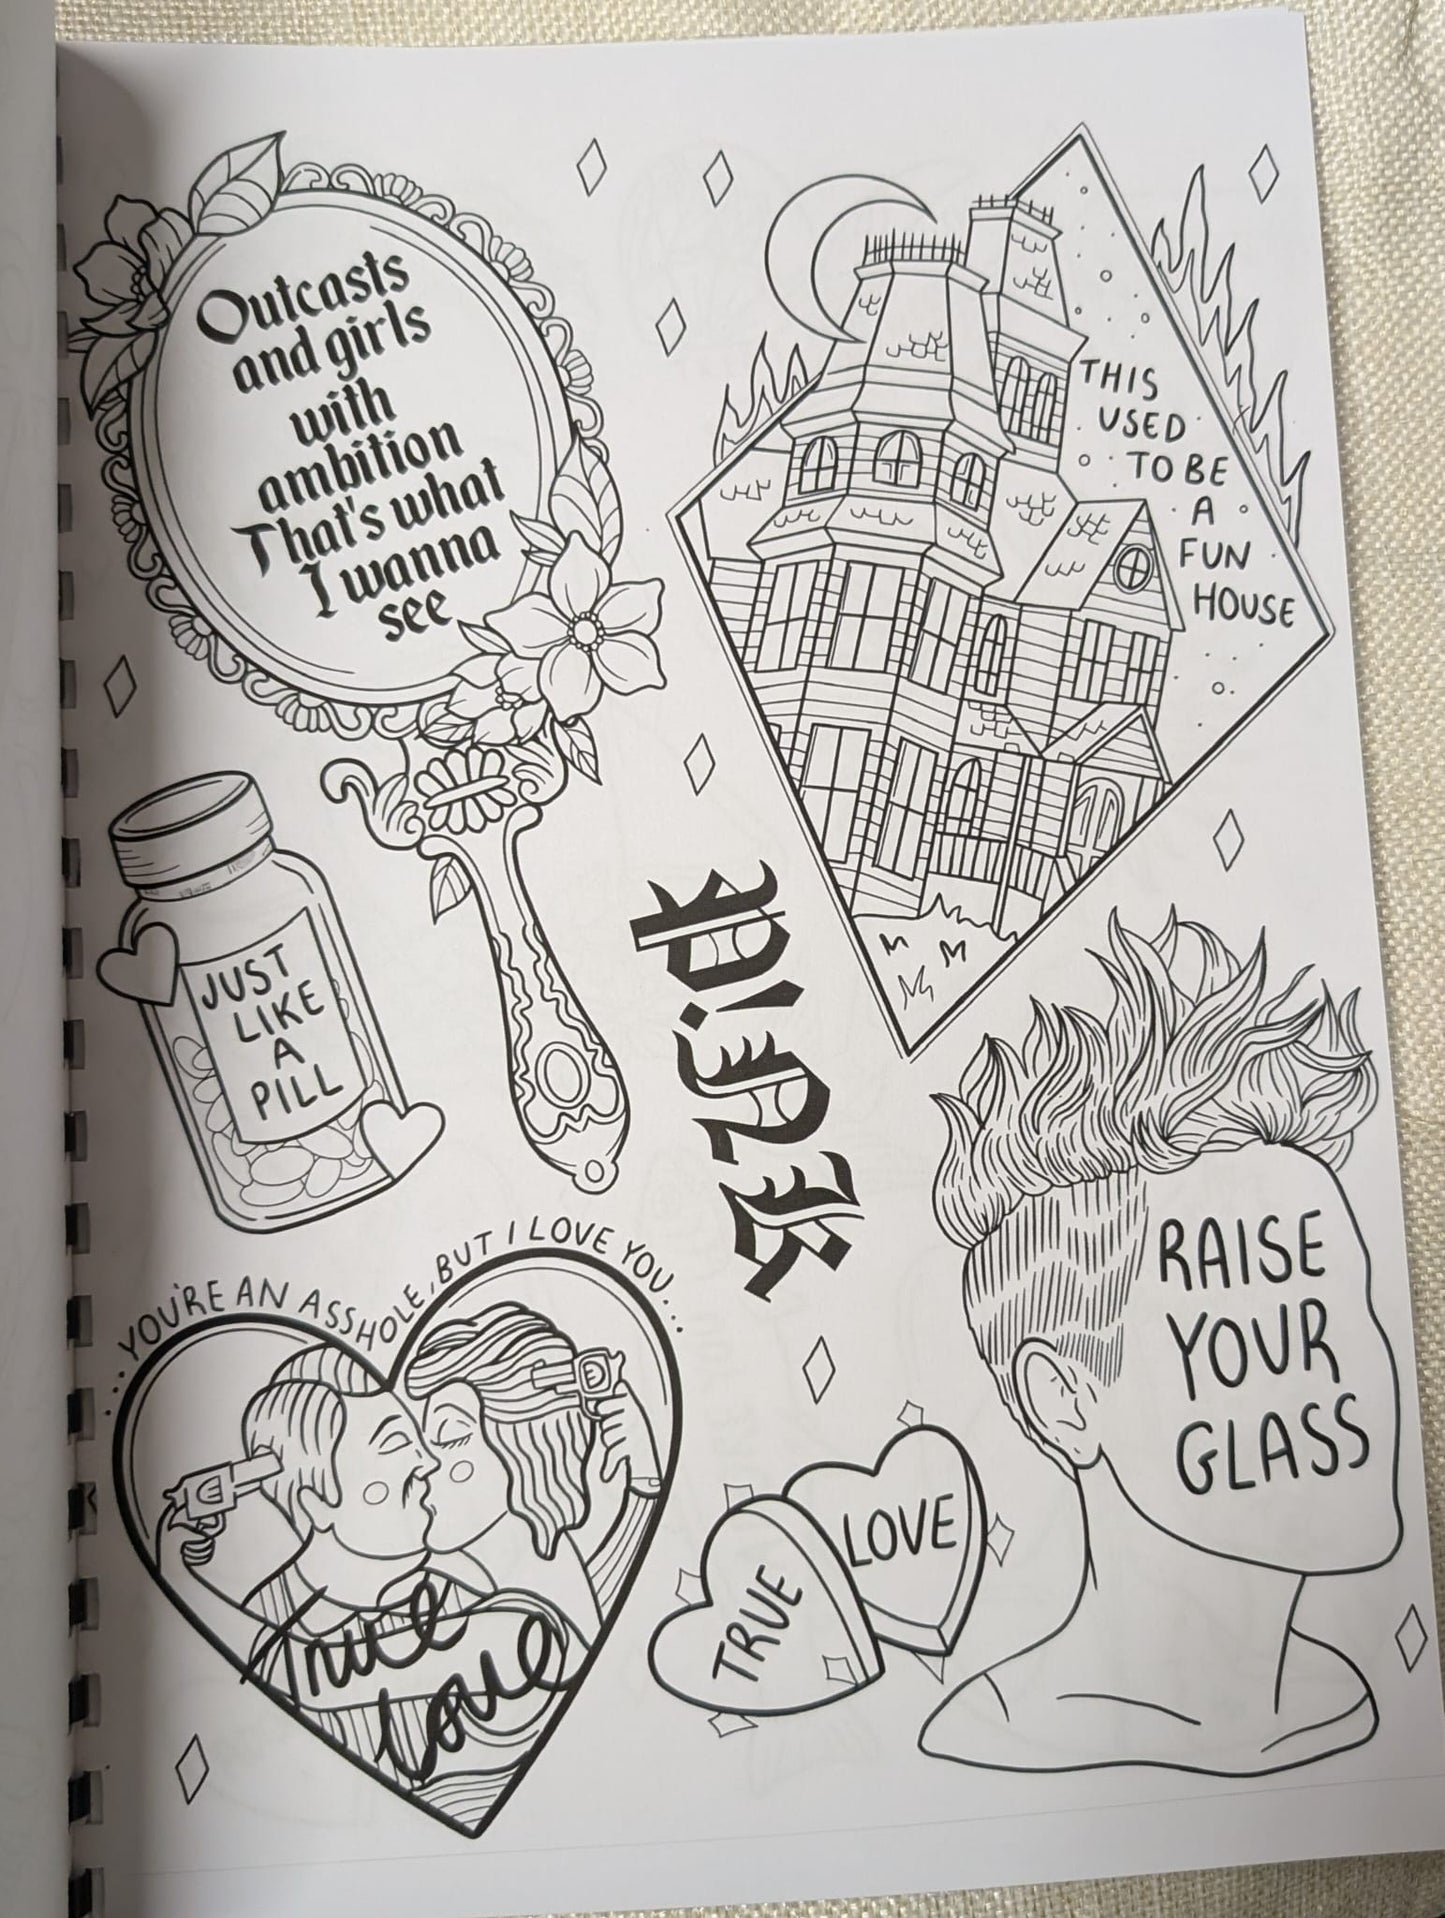 Outcasts
and girls
with
ambition
That's what
I wanna
see
THIS
USED
TO BE
A
FUN
HOUSE
JUST
LIKE
A
PILL
P!NK
RAISE
YOUR
GLASS
...YOU'RE AN ASSHOLE, BUT I LOVE YOU...
True
Love
TRUE
LOVE